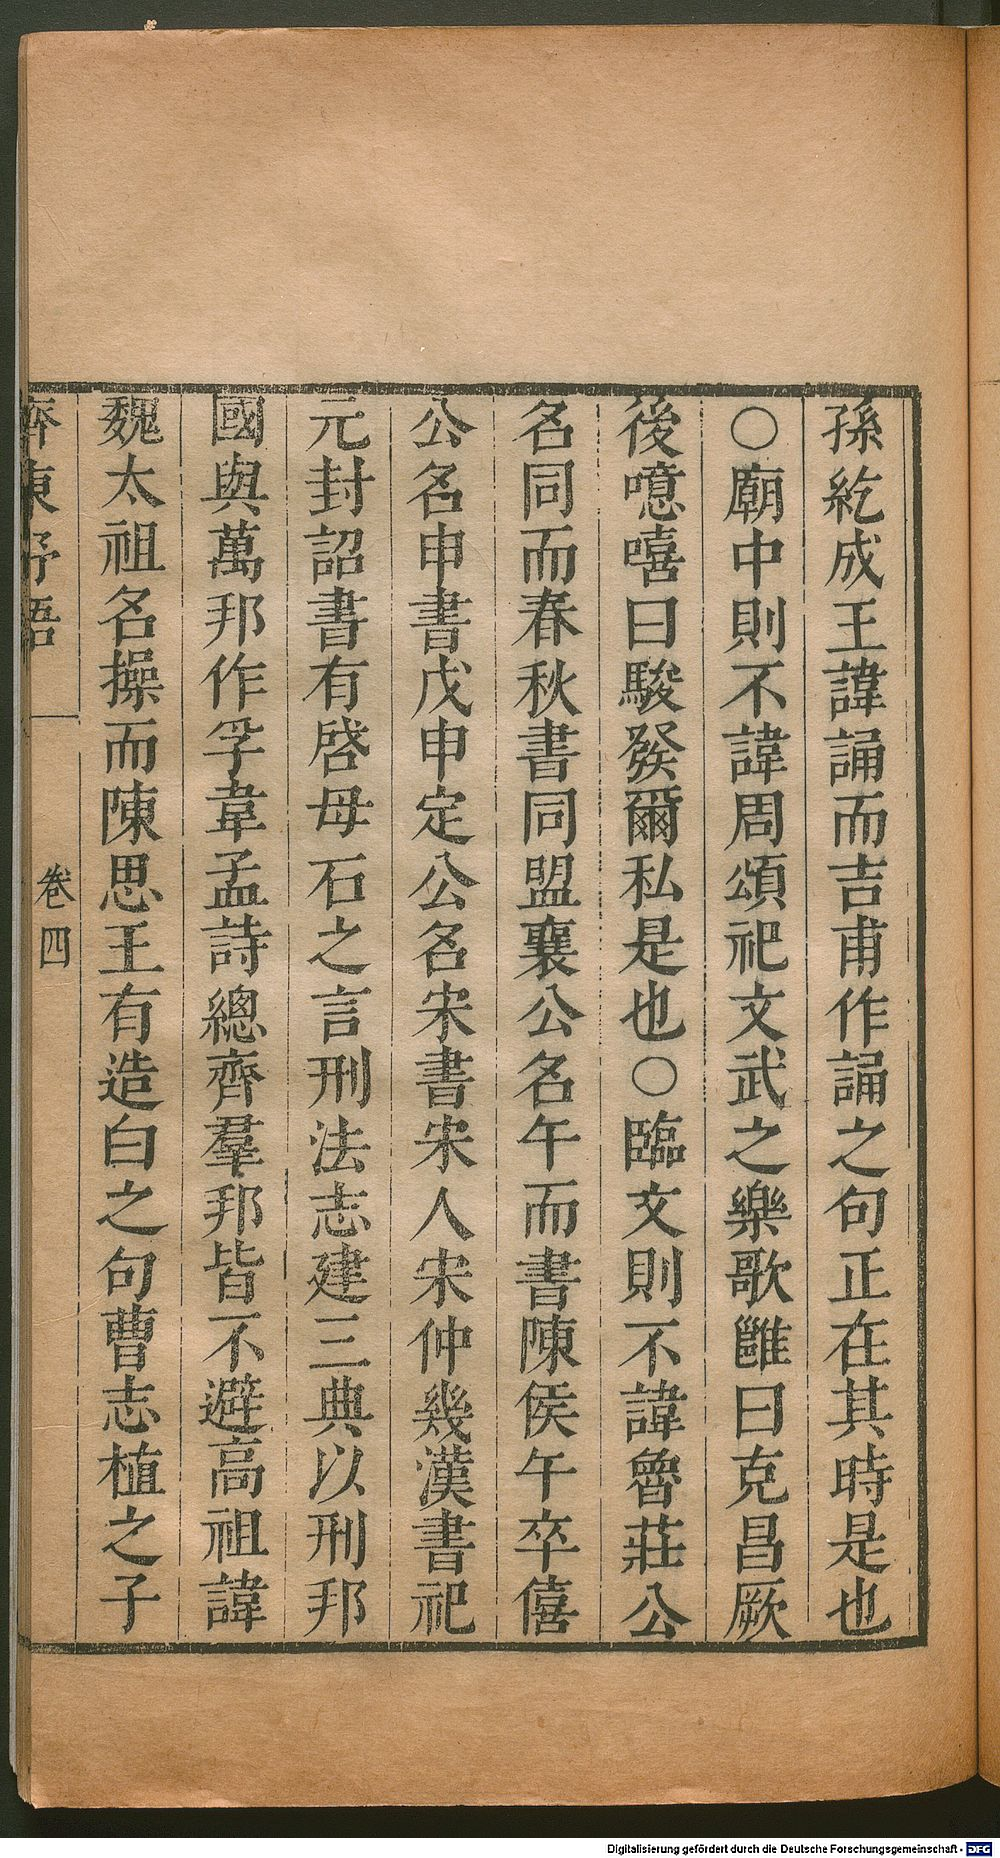 孫紇成王諱誦而吉甫作誦之句正在其時是也
○廟中則不諱周頌祀文武之樂歌雝曰克昌厥
後噫嘻曰駿發爾私是也○臨文則不諱魯莊公
名同而春秋書同盟襄公名午而書陳侯午卒僖
公名申書戊申定公名宋書宋人宋仲幾漢書祀
元封詔書有啓母石之言刑法志建三典以刑邦
國與萬邦作孚韋孟詩總齊羣邦皆不避高祖諱
魏太祖名操而陳思王有造白之句曹志植之子
齊東野語 卷四
Digitalisierung gefördert durch die Deutsche Forschungsgemeinschaft - DFG